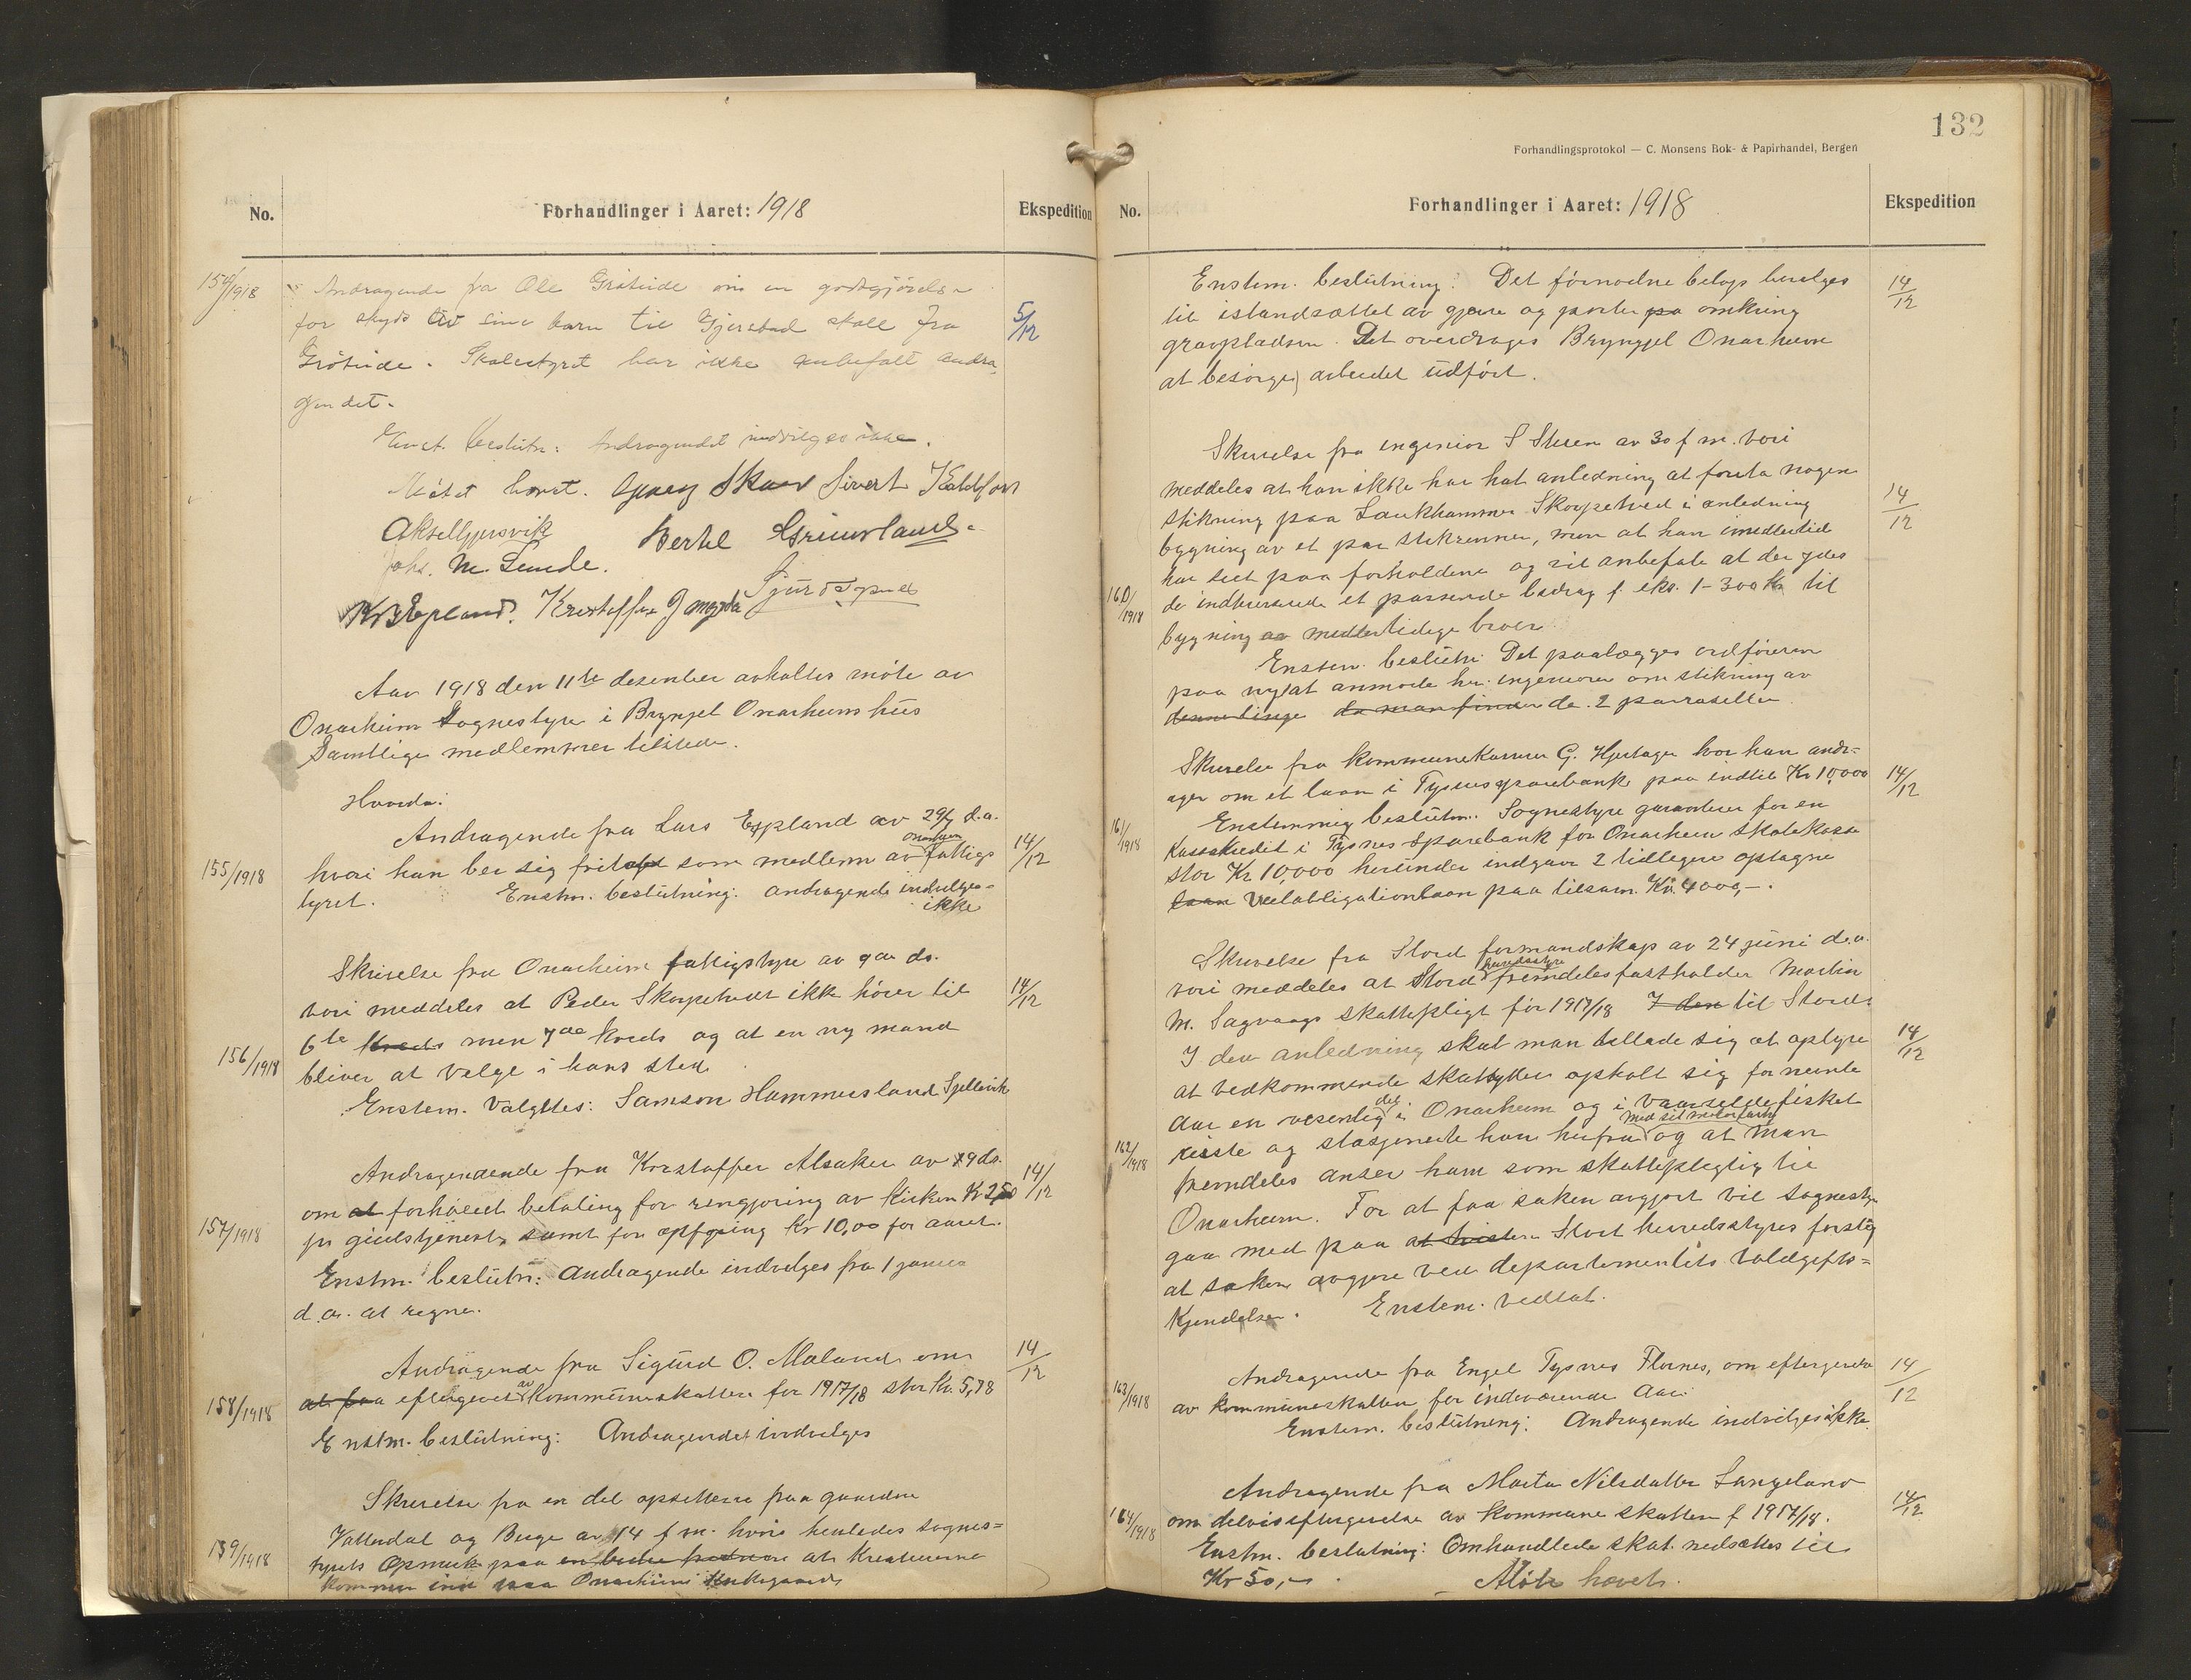 No.
Forhandlinger i Aaret: 1918
Ekspedition
154/1918
Andragende fra Ole Gråtinde om en godtgjörelse
for skyds av sine barn til Gjerstad skole fra
5/12
Gråtinde. Skolestyret har ikke anbefalt andra
gendet.
Enst. beslutn: Andragendet indvilges ikke.
Mötet hævet. Georg Skaar Sivert Koldfors
Aksel Gjersvik Bertel Grimsland
Johs. M. Lunde. Sjurd Opnes
K B Epland. Kristoffer J myrdal
Aar 1918 den 11te desember avholtes möte av
Onarheim Sognestyre i Brynjel Onarheims hus
Samtlige medlemmer tilstede.
Hvorda:
Andragende fra Lars Epland av 29/7 d.a.
155/1918
hvori han ber sig fritat som medlem av Onarheim fattigs
14/12
tyret. Enstm. beslutning: andragende indvilges
ikke
Skrivelse fra Onarheim fattigstyre av 9de ds.
vori meddeles at Peder Skorpetvedt ikke hörer til
14/12
6te kreds men 7de kreds og at en ny mand
156/1918
bliver at velge i hans sted
Enstem. Valgtes: Samson Hammersland Spillevik
Andragendende fra Kristoffer Alsaker av 9 ds.
om at forhöiet betaling for rengjöring av kirken Kr 2,50
14/12
157/1918
pr gudstjeneste samt for opfyring Kr 10,00 for aaret.
Enstm. beslutn: Andragende indvilges fra 1 januar
d.a. at regne.
Andragende fra Sigurd O. Maland om
14/12
158/1918
at faa eftergivet av kommuneskatten for 1917/18 stor Kr. 5,78
Enstm. beslutning: Andragendet indvilges
Skrivelse fra en del opsittere paa gaardene
Vattendal og Berge av 14 f m. hvori henledes sognes=
159/1918
tyrets Opmerk paa at Kreaturerne
kommer ind paa Onarheims Kirkegaard
132
Forhandlingsprotokol — C. Monsens Bok- & Papirhandel, Bergen
No.
Forhandlinger i Aaret: 1918
Ekspedition
Enstem. beslutning: Det fornödne belöp bevilges
14/12
til istandsættel av gjerde og porter pa omkring
gravpladsen. Det overdrages Brynjel Onarheim
at besörge arbeidet udfört.
Skrivelse fra ingeniör S Steen av 30 f m. vori
meddeles at han ikke har hat anledning at foreta nogen
14/12
stikning paa Laukhammer Skorpetved i anledning
bygning av et par stikrenner, men at han imedlertid
har seet paa forholdene og vil anbefale at der ydes
160/1918
de indteresserede et passende bidrag f. eks. 1-300 Kr til
bygning av medlertidige broer
Enstem. beslutn: Det paalægges ordföreren
paa nyt at anmode hr. ingeniören om stikning av
denne linje da man finder de 2 parraseller
Skrivelse fra kommunekasserer G. Hjertager hvor han andr=
ager om et laan i Tysnes sparebank paa indtil Kr 10,000
14/12
161/1918
Enstemmig beslutn. Sognestyre garanterer for en
Kassekredit i Tysnes Sparebank for Onarheim skolekasse
stor Kr. 10,000 herunder indgaar 2 tidligere optagne
laan Vexelobligationlaan paa tilsam. Kr. 4000,-.
Skrivelse fra Stord formandskap av 24 juni d.a.
vori meddeles at Stord heredsstyre fremdeles fastholder Martin
M. Sagvaags skattepligt för 1917/18 I den til Stord.
I den anledning skal man tillade sig at oplyse
14/12
at vedkommende skatteyder opholt sig for nevnte
Aar en vesentlig del i Onarheim og i vaarsildefisket
162/1918
reiste og stasjonerte han herfra med sit motorfartöi og at man
fremdeles anser ham som skattepligtig til
Onarheim. For at faa saken avgjort vil sognestyre
gaa med paa Stort herredsstyres forslag
at saken avgjöre ved departementets voldgifts=
kjendelse. Enstem. vedtat.
Andragende fra Engel Tysnes Flornes, om eftergivelse
14/12
163/1918
av kommuneskatten for indeværende Aar.
Enstem. beslutning: Andragende indvilges ikke.
Andragende fra Marta Nilsdatter Langeland
164/1918
om delvis eftergivelse av kommune skatten f 1917/18.
14/12
Enstm. beslutning: Omhandlede skat nedsættes til
Kr 50,- . Möte hævet.